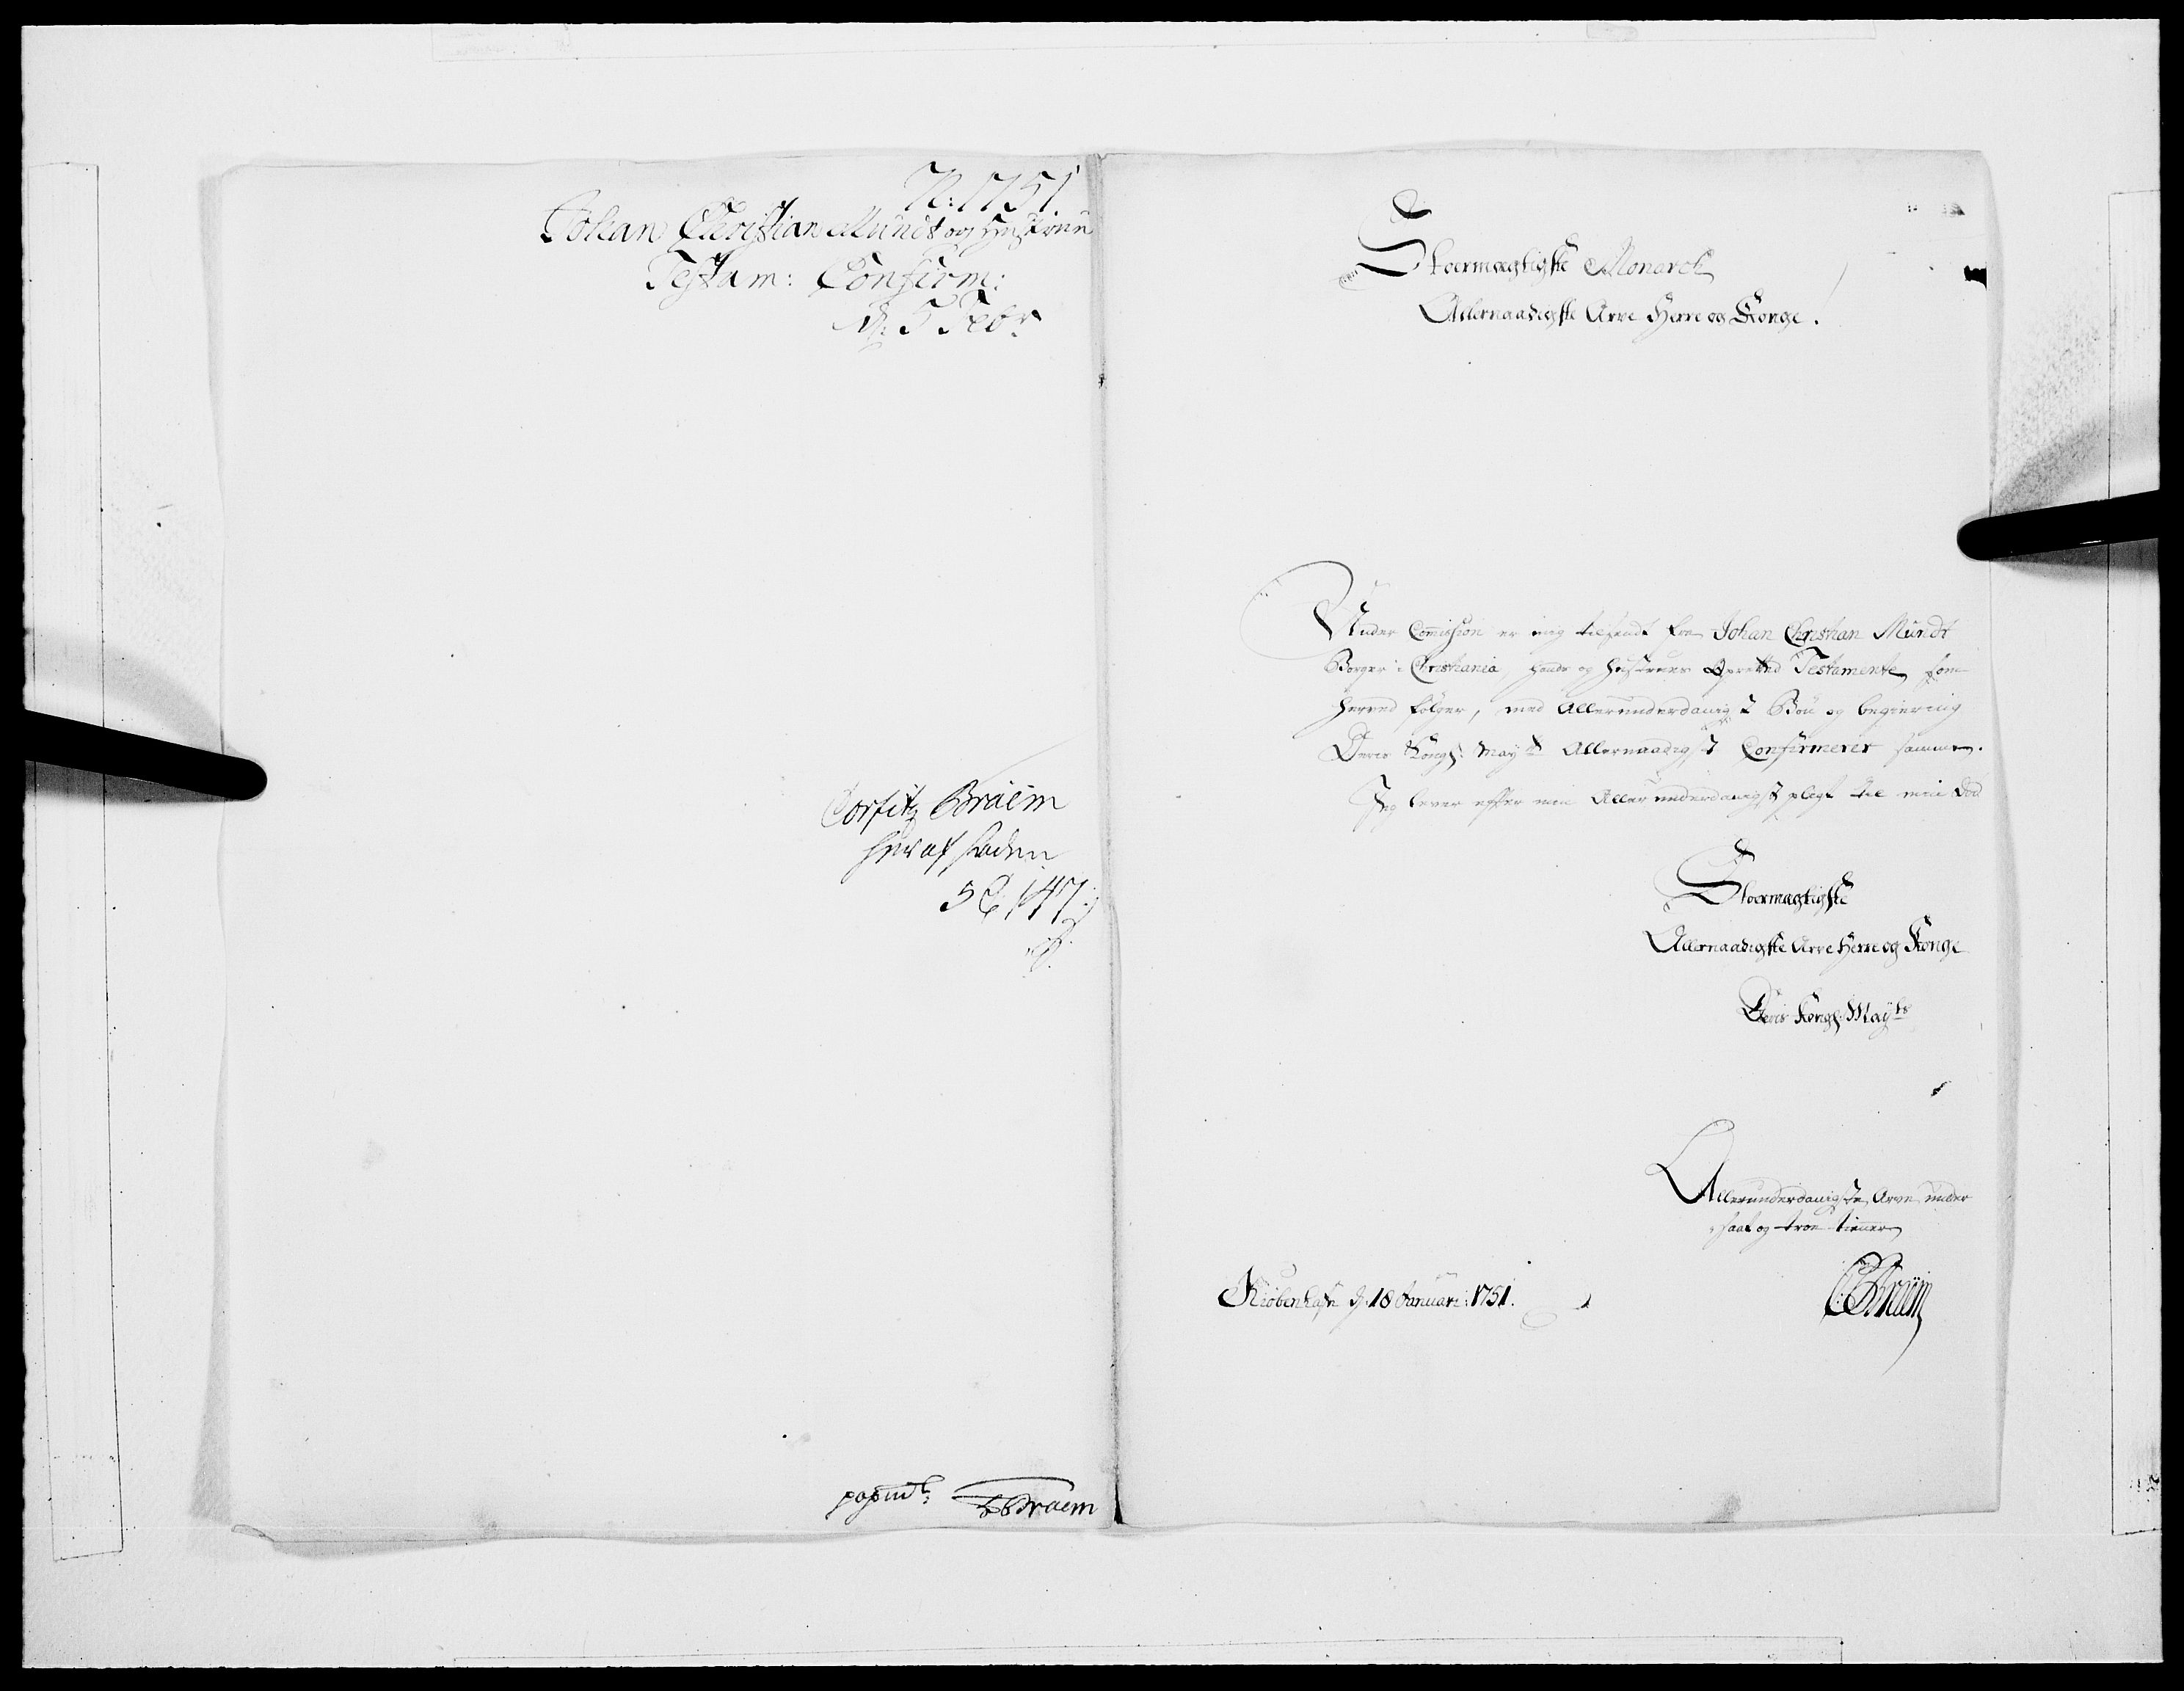 N: 1751
Johan Christian Mundt og Hustrue
Testam: Confirm:
d: 5 Febr
Corfitz Braëm
her af staden
Braem
Stoermægtigste Monarch
Allernaadigste Arve Herre og Konge.
Under Commission er mig tilsendt fra Johan Christian Mundt
Borger i Christiania, hands og hustrues Opretted Testamente som
herved følger, med Allerunderdanigst Bøn og begiering
Deris Kongl: Mayts Allernaadigst Confirmerer samme.
Jeg lever efter min Allerunderdanigst pligt til min død
Stoermægtigste
Allernaadigste Arve Herre og Konge
Deris Kongl: Mayts
Allerunderdanigste Arve under
saat og troe tienner
Kiøbenhafn d. 18 Januari: 1751.
CBraëm